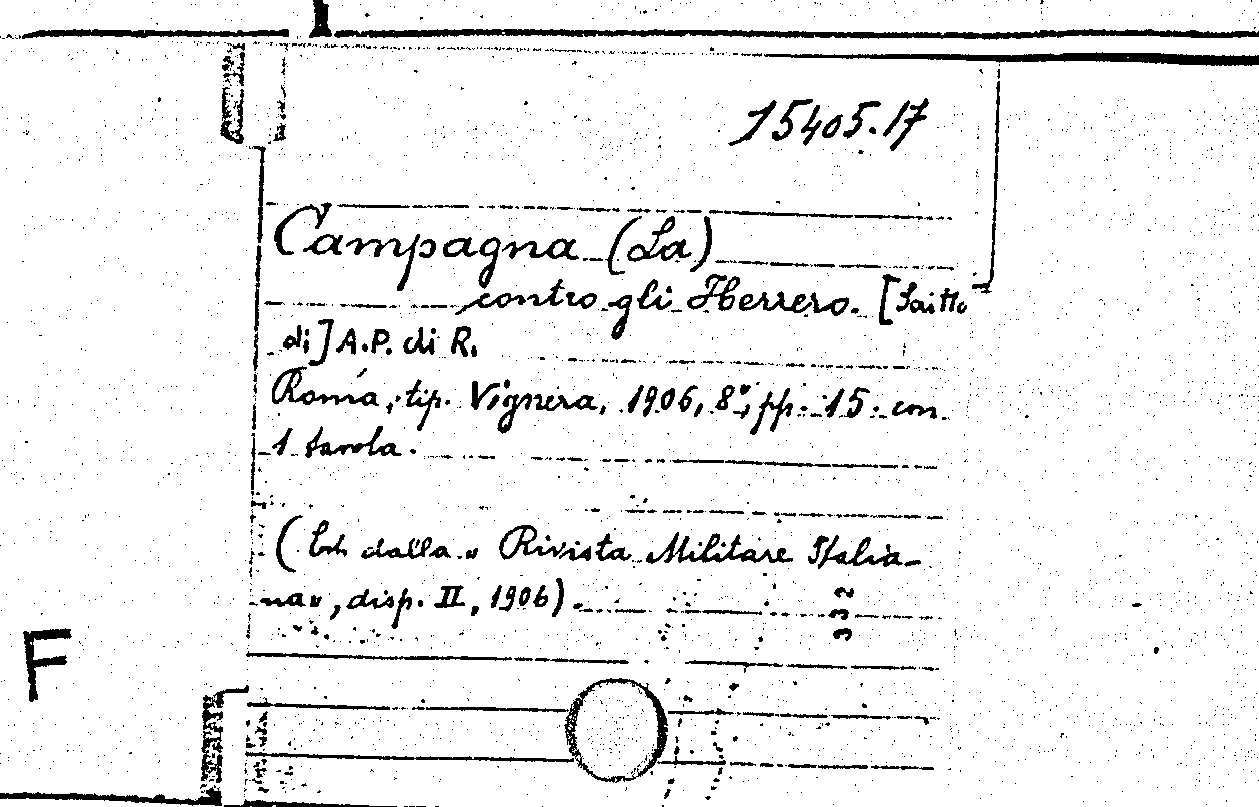 15405.17
Campagna (La)
contro gli Herrero. [Scritto
di] A.P. di R.
Roma, tip. Vighera, 1906, 8°, pp. 15. con
1 tavola.
(Estr. dalla « Rivista Militare Italia-
na», disp. II, 1906).
332
F